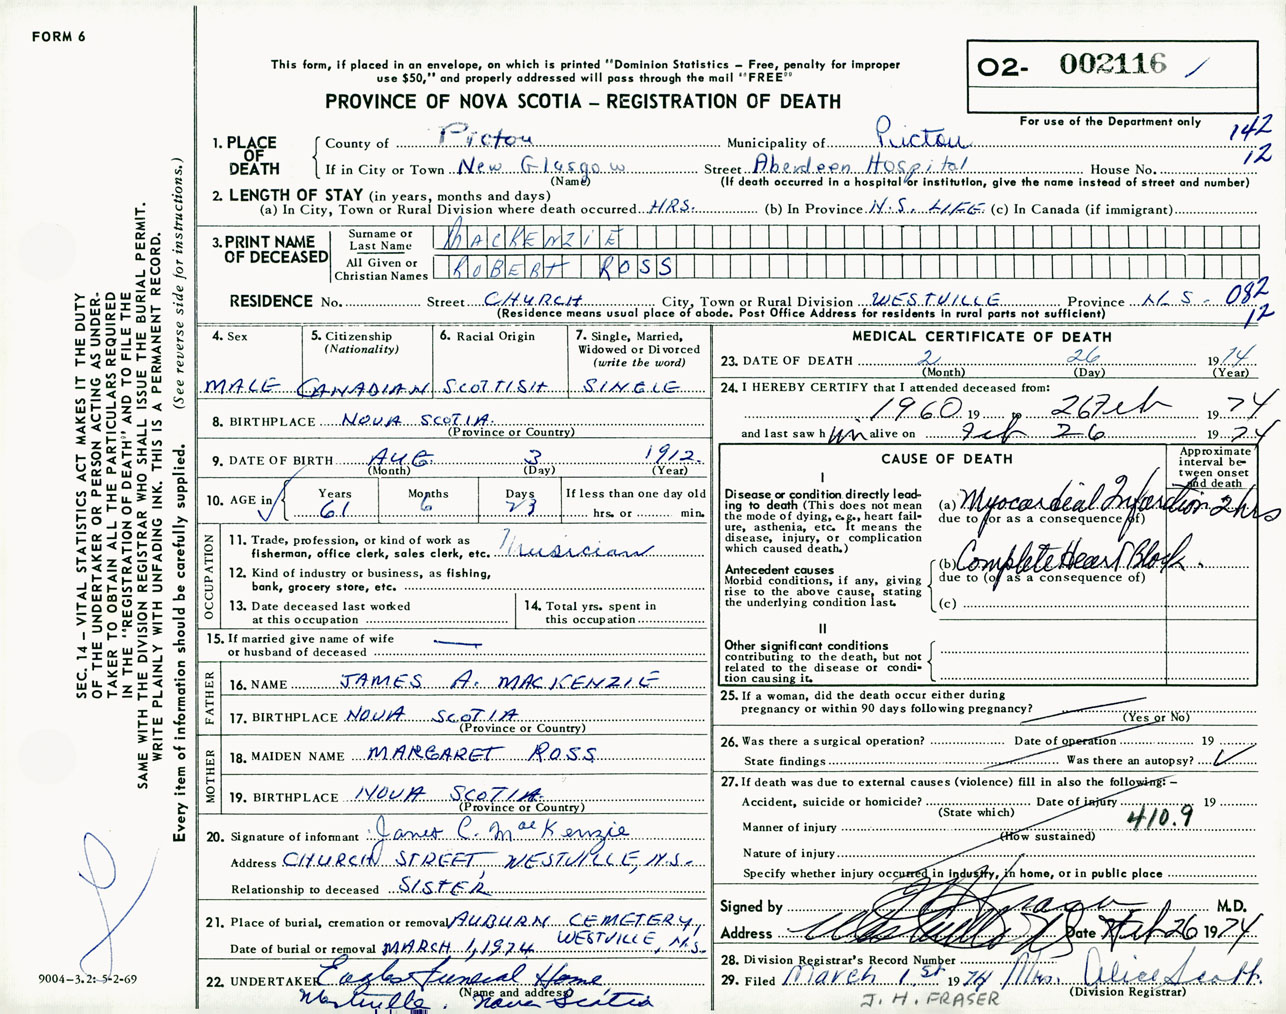 FORM 6
This form, if placed in an envelope, on which is printed "Dominion Statistics - Free, penalty for improper
use $50," and properly addressed will pass through the mail "FREE"
PROVINCE OF NOVA SCOTIA - REGISTRATION OF DEATH
O2- 002116 /
For use of the Department only
142
12
1. PLACE OF DEATH
County of Pictou Municipality of Pictou
If in City or Town New Glasgow Street Aberdeen Hospital House No.
(Name) (If death occurred in a hospital or institution, give the name instead of street and number)
2. LENGTH OF STAY (in years, months and days)
(a) In City, Town or Rural Division where death occurred HRS. (b) In Province N.S. LIFE (c) In Canada (if immigrant)
3. PRINT NAME OF DECEASED
Surname or Last Name MACKENZIE
All Given or Christian Names ROBERT ROSS
RESIDENCE No. Street CHURCH City, Town or Rural Division WESTVILLE Province N.S. 082
(Residence means usual place of abode. Post Office Address for residents in rural parts not sufficient) 12
4. Sex
MALE
5. Citizenship
(Nationality)
CANADIAN
6. Racial Origin
SCOTTISH
7. Single, Married,
Widowed or Divorced
(write the word)
SINGLE
8. BIRTHPLACE NOVA SCOTIA
(Province or Country)
9. DATE OF BIRTH AUG 3 1912
(Month) (Day) (Year)
10. AGE in
Years Months Days If less than one day old
61 6 23 hrs. or min.
OCCUPATION
11. Trade, profession, or kind of work as
fisherman, office clerk, sales clerk, etc. Musician
12. Kind of industry or business, as fishing,
bank, grocery store, etc.
13. Date deceased last worked
at this occupation
14. Total yrs. spent in
this occupation
15. If married give name of wife
or husband of deceased —
FATHER
16. NAME JAMES A. MACKENZIE
17. BIRTHPLACE NOVA SCOTIA
(Province or Country)
MOTHER
18. MAIDEN NAME MARGARET ROSS
19. BIRTHPLACE NOVA SCOTIA
(Province or Country)
20. Signature of informant Janet C. MacKenzie
Address CHURCH STREET, WESTVILLE, N.S.
Relationship to deceased SISTER
21. Place of burial, cremation or removal AUBURN CEMETERY,
WESTVILLE, N.S.
Date of burial or removal MARCH 1, 1974
22. UNDERTAKER Eagles Funeral Home
(Name and address)
Westville, Nova Scotia
MEDICAL CERTIFICATE OF DEATH
23. DATE OF DEATH 2 26 1974
(Month) (Day) (Year)
24. I HEREBY CERTIFY that I attended deceased from:
1960 19 to 26 Feb 1974
and last saw him alive on Feb 26 1974
CAUSE OF DEATH
Approximate
interval be-
tween onset
and death
I
Disease or condition directly lead-
ing to death (This does not mean
the mode of dying, e.g., heart fail-
ure, asthenia, etc. It means the
disease, injury, or complication
which caused death.)
(a) Myocardial Infarction 2 hrs
due to (or as a consequence of)
Antecedent causes
Morbid conditions, if any, giving
rise to the above cause, stating
the underlying condition last.
(b) Complete Heart Block
due to (or as a consequence of)
(c)
II
Other significant conditions
contributing to the death, but not
related to the disease or condi-
tion causing it.
25. If a woman, did the death occur either during
pregnancy or within 90 days following pregnancy?
(Yes or No)
26. Was there a surgical operation? Date of operation 19
State findings Was there an autopsy?
27. If death was due to external causes (violence) fill in also the following: -
Accident, suicide or homicide? Date of injury 19
(State which)
Manner of injury 410.9
(How sustained)
Nature of injury
Specify whether injury occurred in industry, in home, or in public place
Signed by M.D.
Address Date Feb 26 1974
28. Division Registrar's Record Number
29. Filed March 1st 1974 Mrs. Alice Scott
(Division Registrar)
J. H. FRASER
SEC. 14 - VITAL STATISTICS ACT MAKES IT THE DUTY
OF THE UNDERTAKER OR PERSON ACTING AS UNDER-
TAKER TO OBTAIN ALL THE PARTICULARS REQUIRED
IN THE "REGISTRATION OF DEATH" AND TO FILE THE
SAME WITH THE DIVISION REGISTRAR WHO SHALL ISSUE THE BURIAL PERMIT.
WRITE PLAINLY WITH UNFADING INK. THIS IS A PERMANENT RECORD.
Every item of information should be carefully supplied. (See reverse side for instructions.)
9004-3.2: 5-2-69